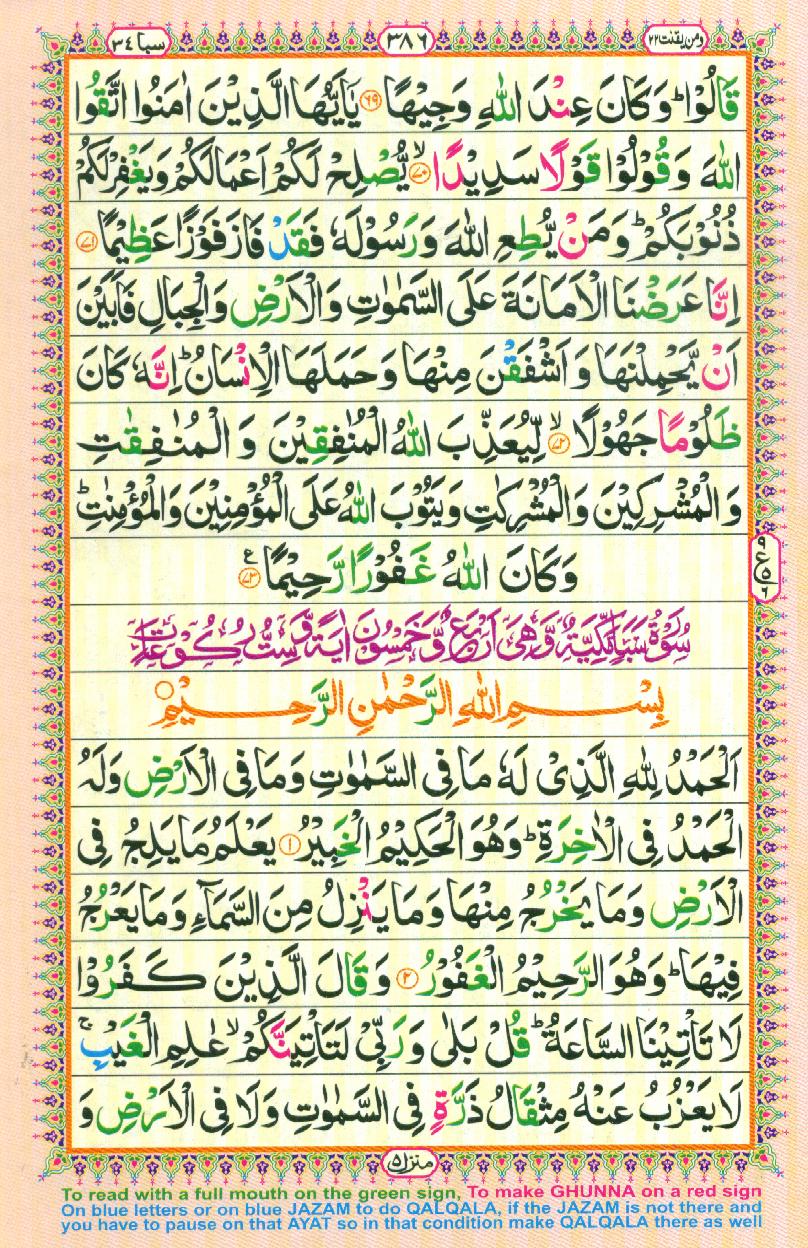 ومن یقنت ۲۲
۳۸۶
سبا ۳۴
قَالُوْا ؕ وَكَانَ عِنْدَ اللّٰهِ وَجِیْهًا ﴿۶۹﴾ یٰۤاَیُّهَا الَّذِیْنَ اٰمَنُوا اتَّقُوا
اللّٰهَ وَ قُوْلُوْا قَوْلًا سَدِیْدًا ﴿۷۰﴾ۙ یُّصْلِحْ لَكُمْ اَعْمَالَكُمْ وَیَغْفِرْ لَكُمْ
ذُنُوْبَكُمْ ؕ وَ مَنْ یُّطِعِ اللّٰهَ وَ رَسُوْلَهٗ فَقَدْ فَازَ فَوْزًا عَظِیْمًا ﴿۷۱﴾
اِنَّا عَرَضْنَا الْاَمَانَةَ عَلَی السَّمٰوٰتِ وَ الْاَرْضِ وَ الْجِبَالِ فَاَبَیْنَ
اَنْ یَّحْمِلْنَهَا وَ اَشْفَقْنَ مِنْهَا وَ حَمَلَهَا الْاِنْسَانُ ؕ اِنَّهٗ كَانَ
ظَلُوْمًا جَهُوْلًا ﴿۷۲﴾ۙ لِّیُعَذِّبَ اللّٰهُ الْمُنٰفِقِیْنَ وَ الْمُنٰفِقٰتِ
وَ الْمُشْرِكِیْنَ وَ الْمُشْرِكٰتِ وَ یَتُوْبَ اللّٰهُ عَلَی الْمُؤْمِنِیْنَ وَ الْمُؤْمِنٰتِ ؕ
وَ كَانَ اللّٰهُ غَفُوْرًا رَّحِیْمًا ﴿۷۳﴾ ع
۹
ع
۵
۶
سُوْرَةُ سَبَاٍ مَّكِّیَّةٌ وَّهِیَ اَرْبَعٌ وَّخَمْسُوْنَ اٰیَةً وَّسِتُّ رُكُوْعَاتٍ
بِسْمِ اللّٰهِ الرَّحْمٰنِ الرَّحِیْمِ ○
اَلْحَمْدُ لِلّٰهِ الَّذِیْ لَهٗ مَا فِی السَّمٰوٰتِ وَ مَا فِی الْاَرْضِ وَ لَهُ
الْحَمْدُ فِی الْاٰخِرَةِ ؕ وَ هُوَ الْحَكِیْمُ الْخَبِیْرُ ﴿۱﴾ یَعْلَمُ مَا یَلِجُ فِی
الْاَرْضِ وَ مَا یَخْرُجُ مِنْهَا وَ مَا یَنْزِلُ مِنَ السَّمَآءِ وَ مَا یَعْرُجُ
فِیْهَا ؕ وَ هُوَ الرَّحِیْمُ الْغَفُوْرُ ﴿۲﴾ وَ قَالَ الَّذِیْنَ كَفَرُوْا
لَا تَاْتِیْنَا السَّاعَةُ ؕ قُلْ بَلٰی وَ رَبِّیْ لَتَاْتِیَنَّكُمْ ۙ عٰلِمِ الْغَیْبِ ۚ
لَا یَعْزُبُ عَنْهُ مِثْقَالُ ذَرَّةٍ فِی السَّمٰوٰتِ وَ لَا فِی الْاَرْضِ وَ
منزل ۵
To read with a full mouth on the green sign, To make GHUNNA on a red sign
On blue letters or on blue JAZAM to do QALQALA, if the JAZAM is not there and
you have to pause on that AYAT so in that condition make QALQALA there as well